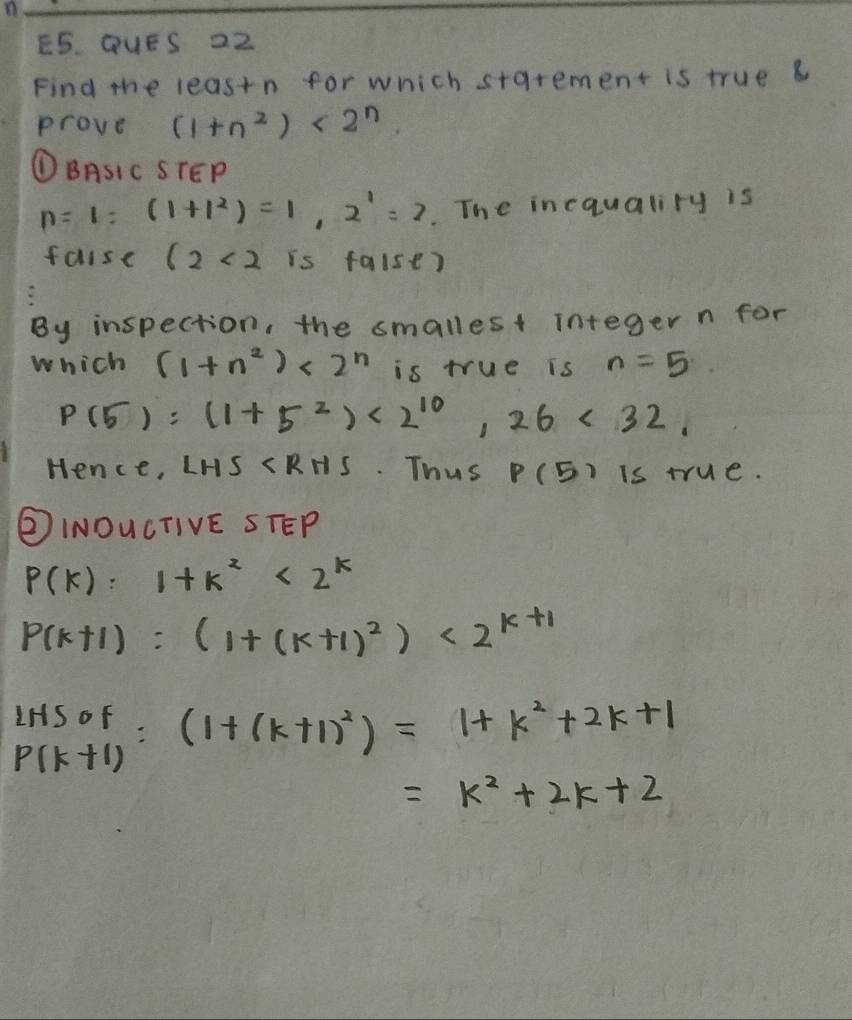 E5. QUES 22
Find the least n for which statement is true &
prove (1+n²) < 2ⁿ.
① BASIC STEP
n=1: (1+1²)=1, 2¹=2. The inequality is
false (2<2 is false)
⋮
By inspection, the smallest integer n for
which (1+n²)<2ⁿ is true is n=5.
P(5): (1+5²)<2¹⁰, 26 < 32.
Hence, LHS <RHS. Thus P(5) is true.
② INDUCTIVE STEP
P(k): 1+k² < 2ᵏ
P(k+1): (1+(k+1)²) < 2ᵏ⁺¹
LHS of P(k+1): (1+(k+1)²) = 1+k²+2k+1
= k²+2k+2